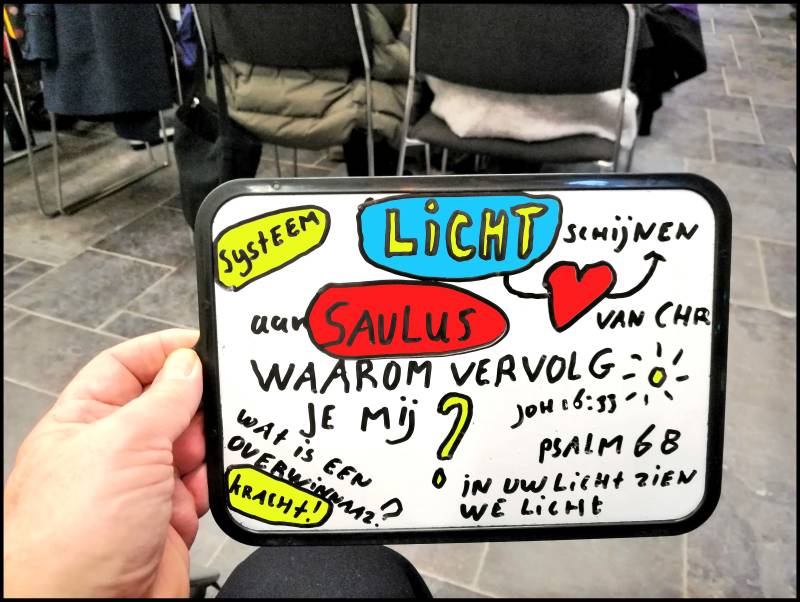 SYSTEEM
LiCHT schijNEN
VAN CHR
aan SAULUS
WAAROM VERVOLG
JE Mij ?
JOH 16:33
PSALM 68
WAt iS EEN
OVERWiNNAAR?
KRACHt!
iN UW LiCHt ZiEN
WE LiCHt